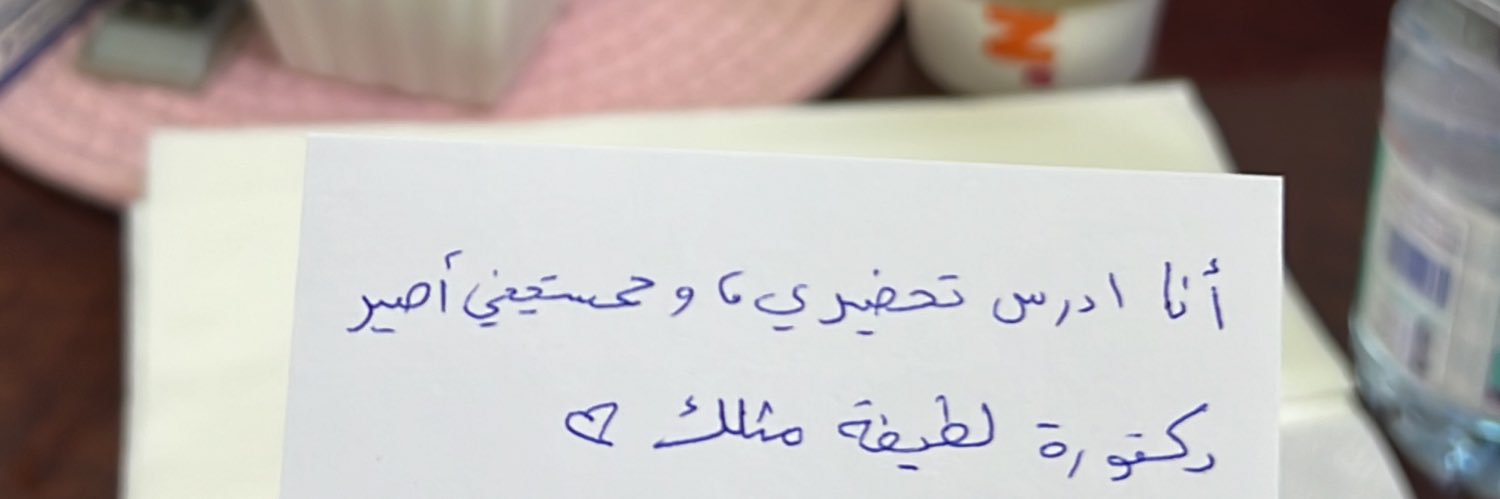 أنا ادرس تحضيري، و محستحيني أصير
دكتورة لطيفة مثلك ♡